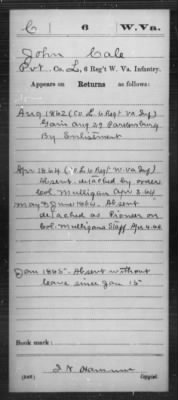 C | 6 | W.Va.
John Cale
Pvt., Co. L, 6 Reg't W. Va. Infantry.
Appears on Returns as follows:
Aug 1862 (Co L 6 Regt Va Inf)
Gain Aug 29 Parkersburg
By Enlistment
Apr 1864 (Co L 6 Regt W Va Inf)
Absent detached by order
Col. Mulligan Apr 3.64
May & June 1864. Absent
detached as Pioneer on
Col. Mulligans Staff Apr 4.64
Jan 1865. Absent without
leave since Jan 15
Book mark:
Copyist.